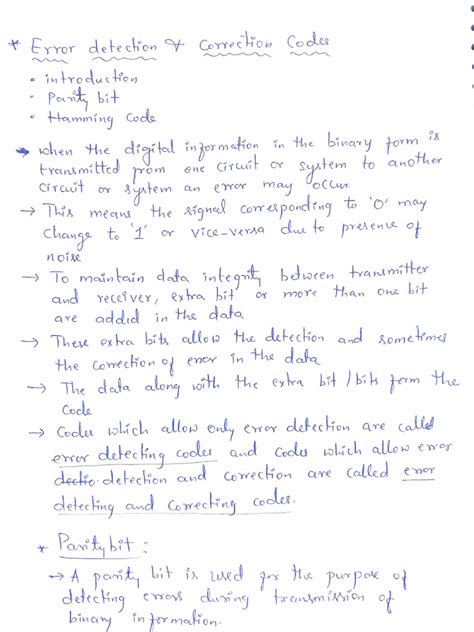 * Error detection & correction Codes
• introduction
• Parity bit
• Hamming Code
→ when the digital information in the binary form is
transmitted from one circuit or system to another
circuit or system an error may occur.
→ This means the signal corresponding to '0' may
change to '1' or vice-versa due to presence of
noise
→ To maintain data integrity between transmitter
and receiver, extra bit or more than one bit
are added in the data
→ These extra bits allow the detection and sometimes
the correction of error in the data
→ The data along with the extra bit / bits form the
Code
→ Codes which allow only error detection are called
error detecting codes and codes which allow error
dectio detection and correction are called error
detecting and correcting codes.
* Parity bit :
→ A parity bit is used for the purpose of
detecting errors during transmission of
binary information.